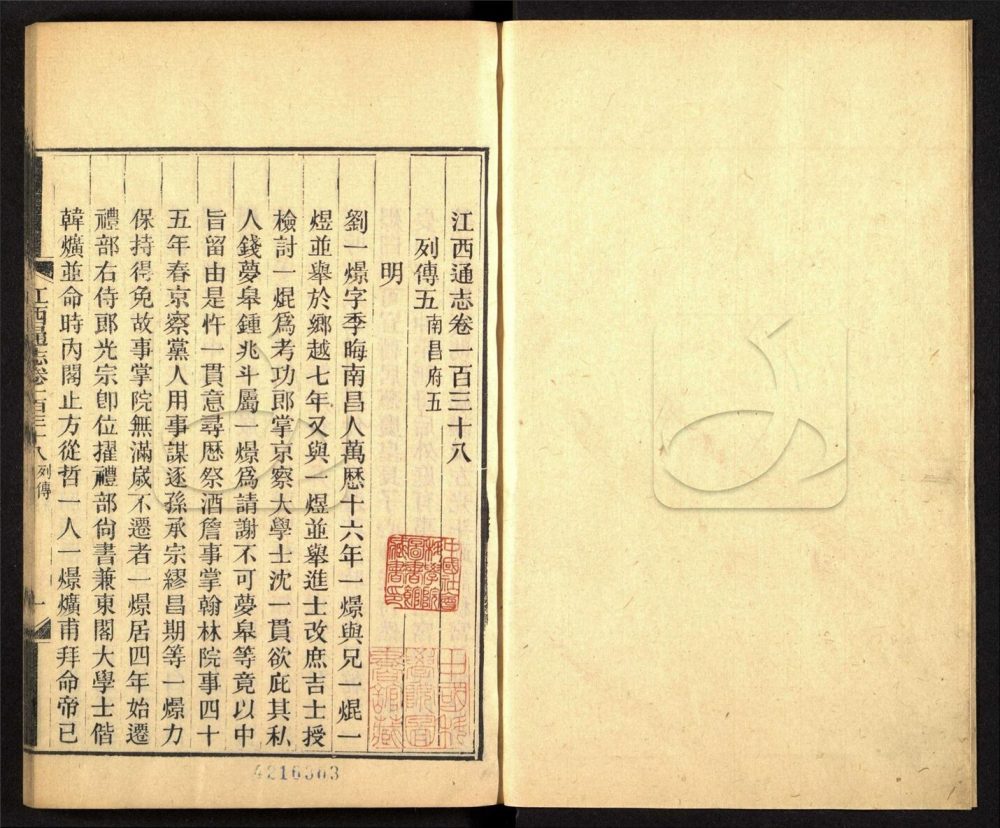 江西通志卷一百三十八
列傳五南昌府五
明
劉一燝字季晦南昌人萬歷十六年一燝與兄一焜一
煜並舉於鄉越七年又與一煜並舉進士改庶吉士授
檢討一焜爲考功郎掌京察大學士沈一貫欲庇其私
人錢夢皋鍾兆斗屬一燝爲請謝不可夢皋等竟以中
旨留由是忤一貫意尋歴祭酒詹事掌翰林院事四十
五年春京察黨人用事謀逐孫承宗繆昌期等一燝力
保持得免故事掌院無滿歲不遷者一燝居四年始遷
禮部右侍郎光宗卽位擢禮部尙書兼東閣大學士偕
韓爌並命時內閣止方從哲一人一燝爌甫拜命帝已
江西通志卷一百三十八 列傳
一
中國社會科學院圖書館藏書印
4216303